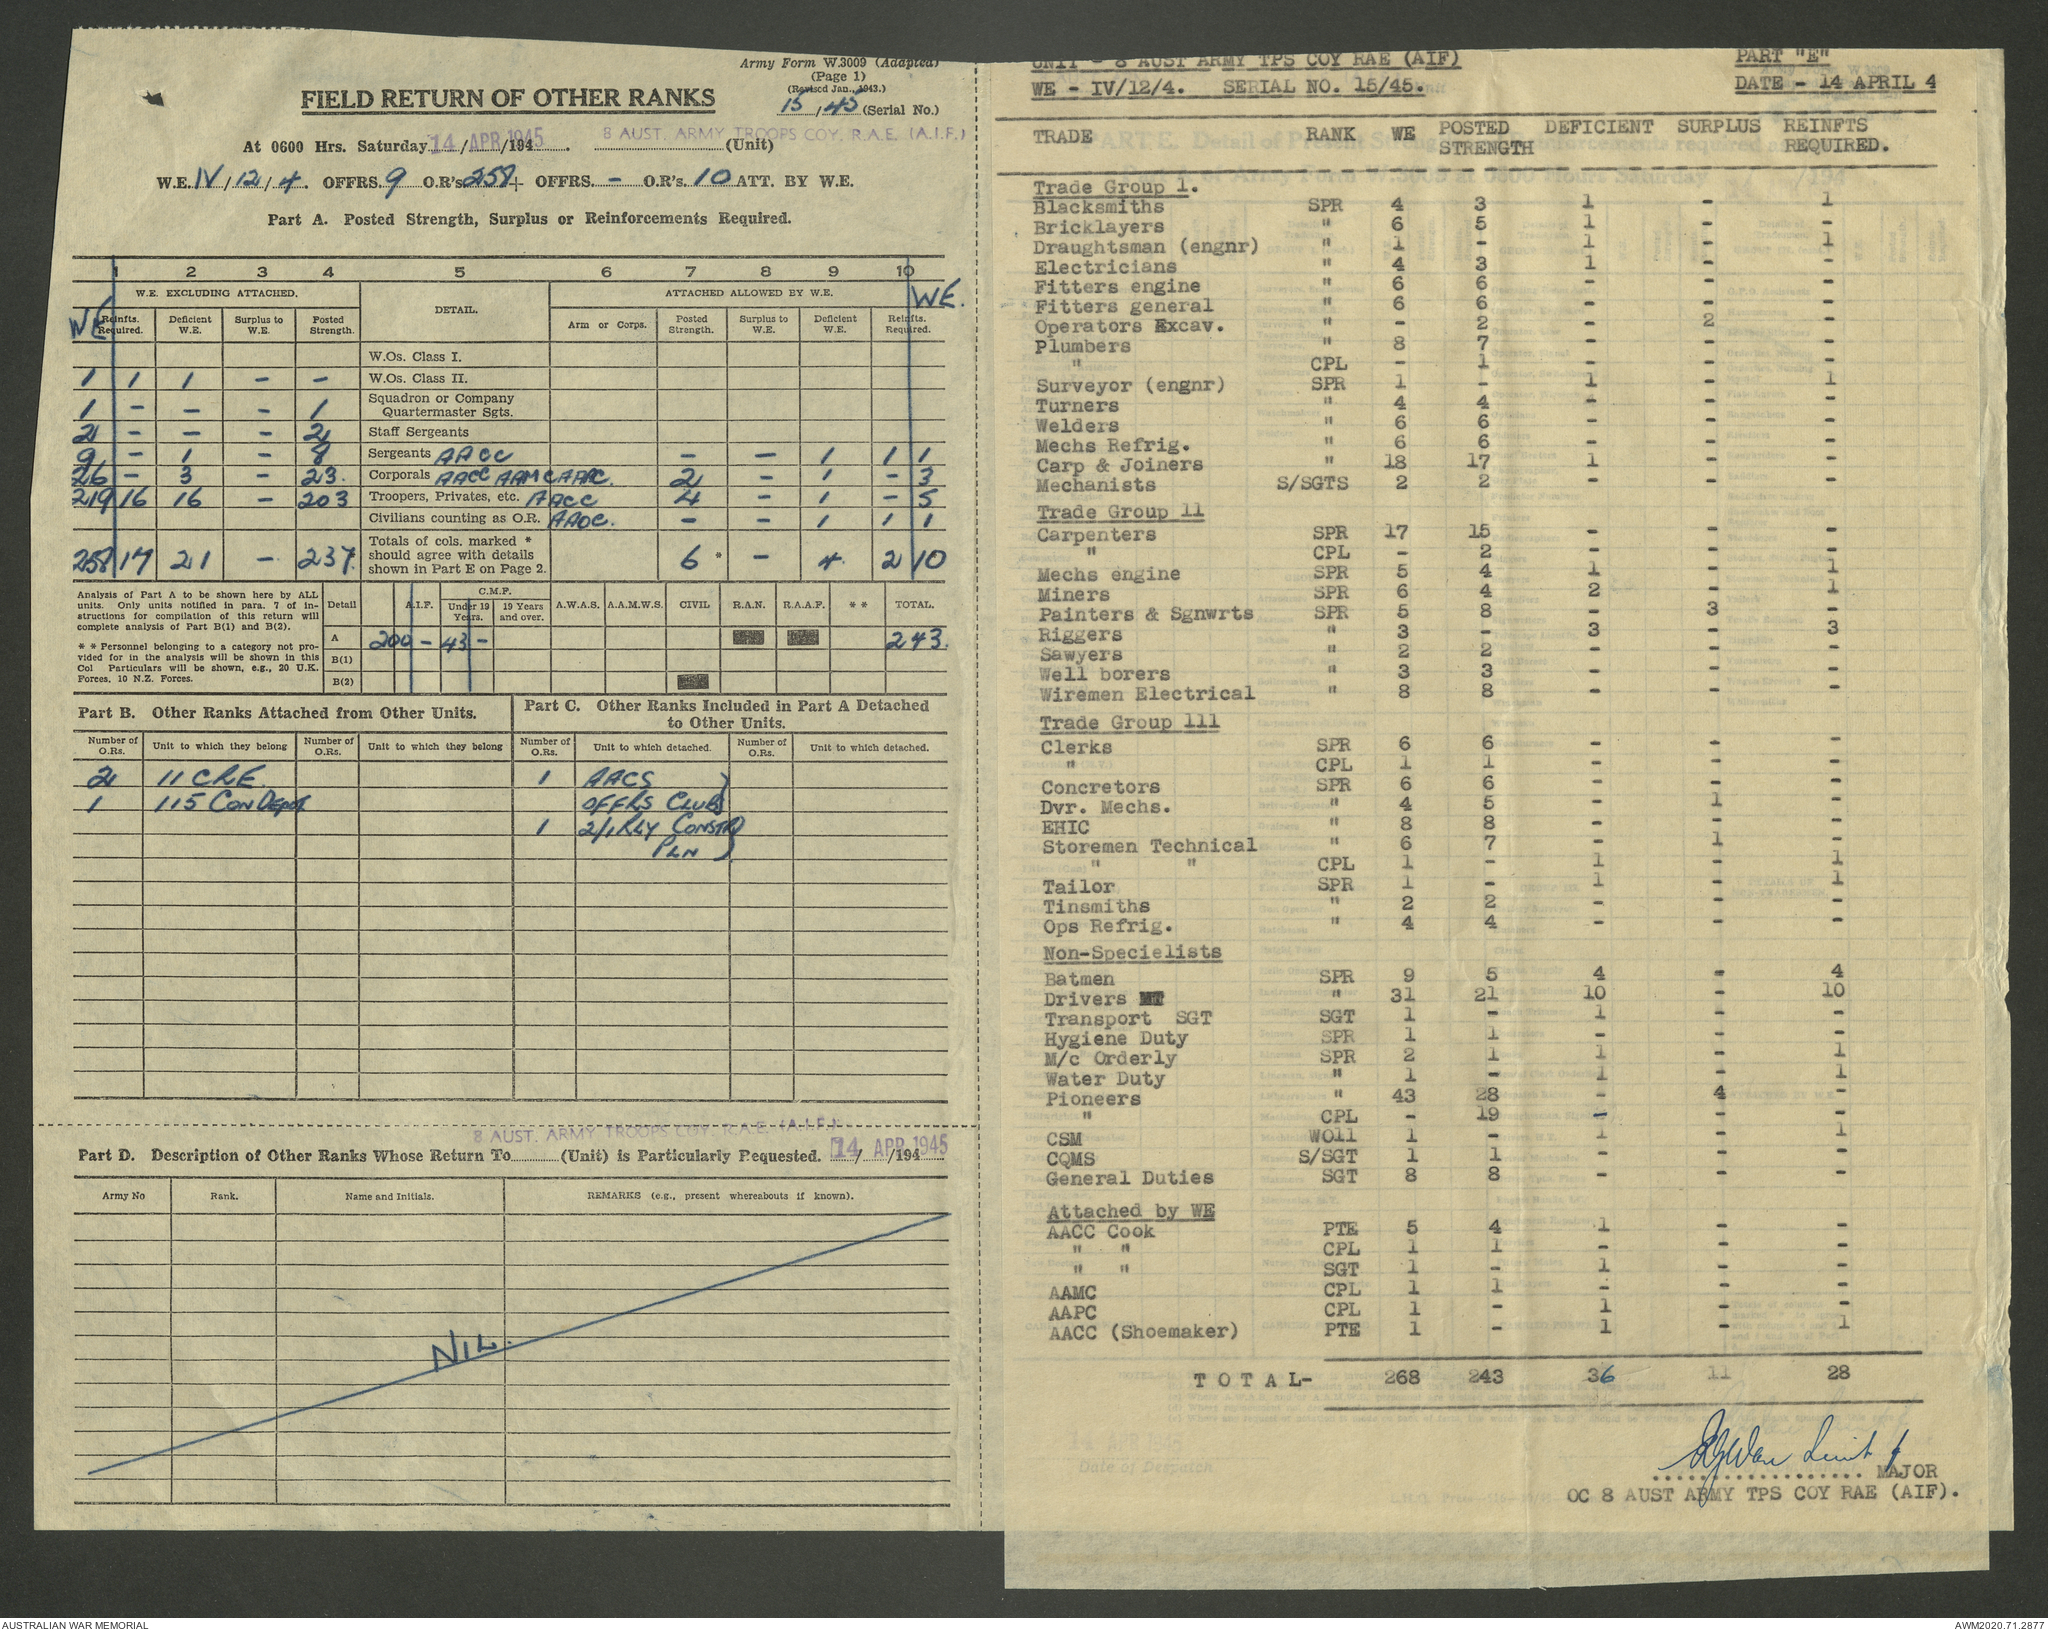 Army Form W.3009 (Adapted)
(Page 1)
(Revised Jan., 1943.)
FIELD RETURN OF OTHER RANKS
15 / 45 (Serial No.)
At 0600 Hrs. Saturday 14 / APR /1945. 8 AUST. ARMY TROOPS COY. R.A.E. (A.I.F.) (Unit)
W.E. IV / 12 / 4. OFFRS. 9 O.R's 258 + OFFRS. - O.R's. 10 ATT. BY W.E.
Part A. Posted Strength, Surplus or Reinforcements Required.
1 2 3 4 5 6 7 8 9 10
W.E. EXCLUDING ATTACHED. DETAIL. ATTACHED ALLOWED BY W.E. WE.
WE Reinfts. Required. Deficient W.E. Surplus to W.E. Posted Strength. Arm or Corps. Posted Strength. Surplus to W.E. Deficient W.E. Reinfts. Required.
W.Os. Class I.
1 1 1 - - W.Os. Class II.
1 - - - 1 Squadron or Company Quartermaster Sgts.
2 - - - 2 Staff Sergeants
9 - 1 - 8 Sergeants AACC - - 1 1 1
26 - 3 - 23. Corporals AACC AAMC AAPC. 2 - 1 - 3
219 16 16 - 203 Troopers, Privates, etc. AACC 4 - 1 - 5
Civilians counting as O.R. AAOC. - - 1 1 1
258 17 21 - 237. Totals of cols. marked * should agree with details shown in Part E on Page 2. 6 * - 4. 2 10
Analysis of Part A to be shown here by ALL
units. Only units notified in para. 7 of in-
structions for compilation of this return will
complete analysis of Part B(1) and B(2).
* * Personnel belonging to a category not pro-
vided for in the analysis will be shown in this
Col Particulars will be shown, e.g., 20 U.K.
Forces, 10 N.Z. Forces.
Detail A.I.F. C.M.F. Under 19 Years. 19 Years and over. A.W.A.S. A.A.M.W.S. CIVIL R.A.N. R.A.A.F. * * TOTAL.
A 200 - 43 - 243.
B(1)
B(2)
Part B. Other Ranks Attached from Other Units.
Number of O.Rs. Unit to which they belong Number of O.Rs. Unit to which they belong
2 11 CRE
1 115 Con Depot
Part C. Other Ranks Included in Part A Detached
to Other Units.
Number of O.Rs. Unit to which detached. Number of O.Rs. Unit to which detached.
1 AACS )
OFFRS CLUBS
1 2/1 RLY CONSTR )
PLN )
8 AUST. ARMY TROOPS COY. R.A.E. (A.I.F.)
Part D. Description of Other Ranks Whose Return To (Unit) is Particularly Requested. 14 / APR /1945
Army No Rank. Name and Initials. REMARKS (e.g., present whereabouts if known).
NIL.
UNIT - 8 AUST ARMY TPS COY RAE (AIF) PART "E"
WE - IV/12/4. SERIAL NO. 15/45. DATE - 14 APRIL 4
TRADE RANK WE POSTED STRENGTH DEFICIENT SURPLUS REINFTS REQUIRED.
Trade Group 1.
Blacksmiths SPR 4 3 1 - 1
Bricklayers " 6 5 1 - -
Draughtsman (engnr) " 1 - 1 - 1
Electricians " 4 3 1 - -
Fitters engine " 6 6 - - -
Fitters general " 6 6 - - -
Operators Excav. " - 2 - 2 -
Plumbers " 8 7 - - -
" CPL - 1 - - -
Surveyor (engnr) SPR 1 - 1 - 1
Turners " 4 4 - - -
Welders " 6 6 - - -
Mechs Refrig. " 6 6 - - -
Carp & Joiners " 18 17 1 - -
Mechanists S/SGTS 2 2 - - -
Trade Group 11
Carpenters SPR 17 15 - - -
" CPL - 2 - - -
Mechs engine SPR 5 4 1 - 1
Miners SPR 6 4 2 - 1
Painters & Sgnwrts SPR 5 8 - 3 -
Riggers " 3 - 3 - 3
Sawyers " 2 2 - - -
Well borers " 3 3 - - -
Wiremen Electrical " 8 8 - - -
Trade Group 111
Clerks SPR 6 6 - - -
" CPL 1 1 - - -
Concretors SPR 6 6 - - -
Dvr. Mechs. " 4 5 - 1 -
EHIC " 8 8 - - -
Storemen Technical " 6 7 - 1 -
" " CPL 1 - 1 - 1
Tailor SPR 1 - 1 - 1
Tinsmiths " 2 2 - - -
Ops Refrig. " 4 4 - - -
Non-Specielists
Batmen SPR 9 5 4 - 4
Drivers MT " 31 21 10 - 10
Transport SGT SGT 1 - 1 - -
Hygiene Duty SPR 1 1 - - -
M/c Orderly SPR 2 1 1 - 1
Water Duty " 1 - 1 - 1
Pioneers " 43 28 - 4 -
" CPL - 19 - - -
CSM WO11 1 - 1 - 1
CQMS S/SGT 1 1 - - -
General Duties SGT 8 8 - - -
Attached by WE
AACC Cook PTE 5 4 1 - -
" " CPL 1 1 - - -
" " SGT 1 - 1 - -
AAMC CPL 1 1 - - -
AAPC CPL 1 - 1 - -
AACC (Shoemaker) PTE 1 - 1 - 1
TOTAL- 268 243 36 11 28
Lieut f
MAJOR
OC 8 AUST ARMY TPS COY RAE (AIF).
14 APR 194
Date of Despatch
AUSTRALIAN WAR MEMORIAL
AWM2020.71.2877